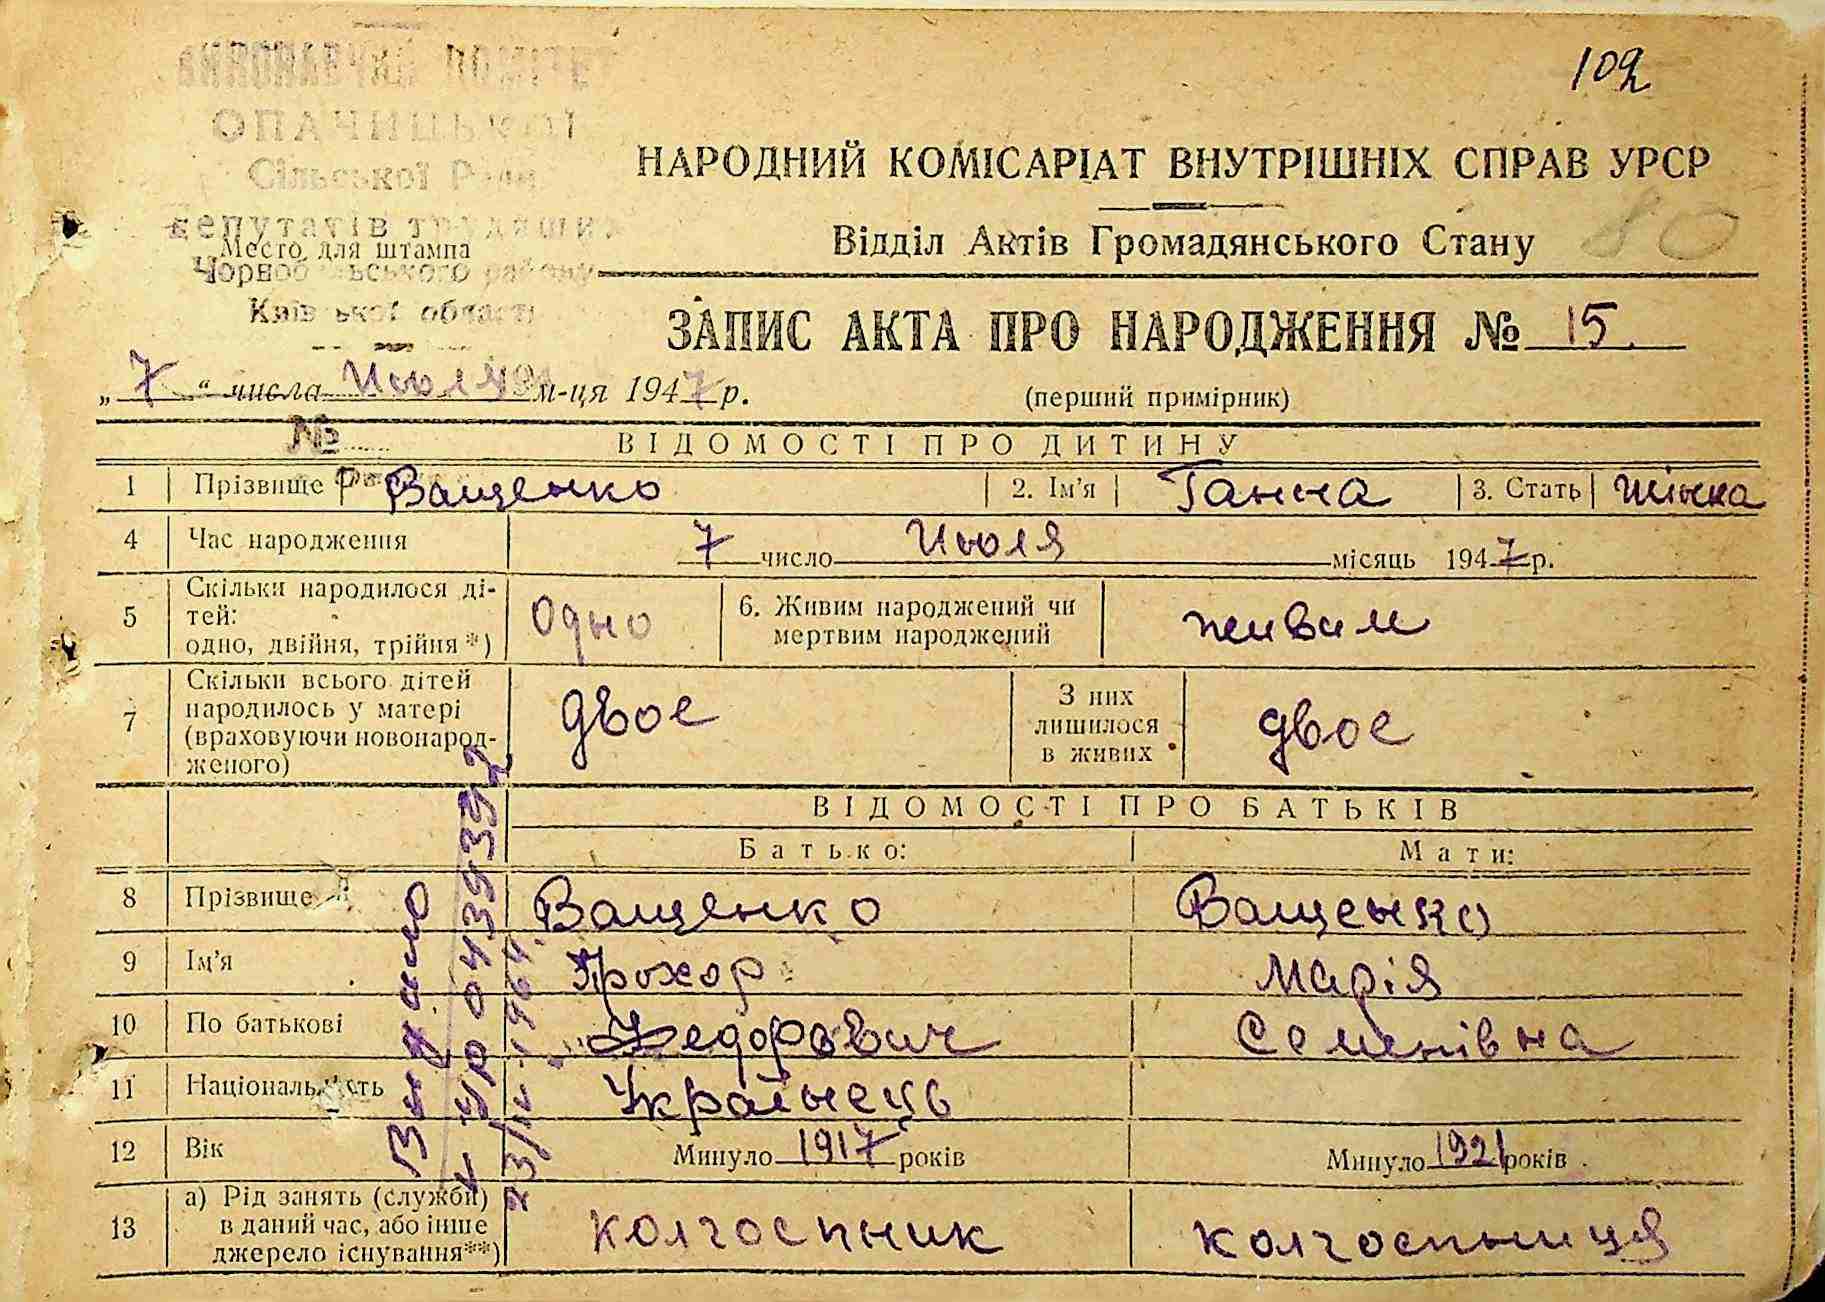 102
ВИКОНАВЧИЙ КОМІТЕТ
ОПАЧИЦЬКОЇ
Сільської Ради
депутатів трудящих
Место для штампа
Чорнобильського району
Київської області
НАРОДНИЙ КОМІСАРІАТ ВНУТРІШНІХ СПРАВ УРСР
Відділ Актів Громадянського Стану
80
ЗАПИС АКТА ПРО НАРОДЖЕННЯ № 15.
„ 7 “ числа Июля м-ця 1947 р.
(перший примірник)
№
ВІДОМОСТІ ПРО ДИТИНУ
1 Прізвище Ващенко 2. Ім'я Ганна 3. Стать Жінка
4 Час народження 7 число Июля місяць 1947 р.
5 Скільки народилося ді-
тей:
одно, двійня, трійня *)
Одно
6. Живим народжений чи
мертвим народжений
живим
7 Скільки всього дітей
народилось у матері
(враховуючи новонарод-
женого)
двое
З них
лишилося
в живих
двое
ВІДОМОСТІ ПРО БАТЬКІВ
Батько: Мати:
8 Прізвище Ващенко Ващенко
9 Ім'я Прохор Марія
10 По батькові Федорович Семенівна
11 Національність Українець
12 Вік Минуло 1917 років Минуло 1921 років
13 а) Рід занять (служби)
в даний час, або інше
джерело існування**)
колгоспник колгоспниця